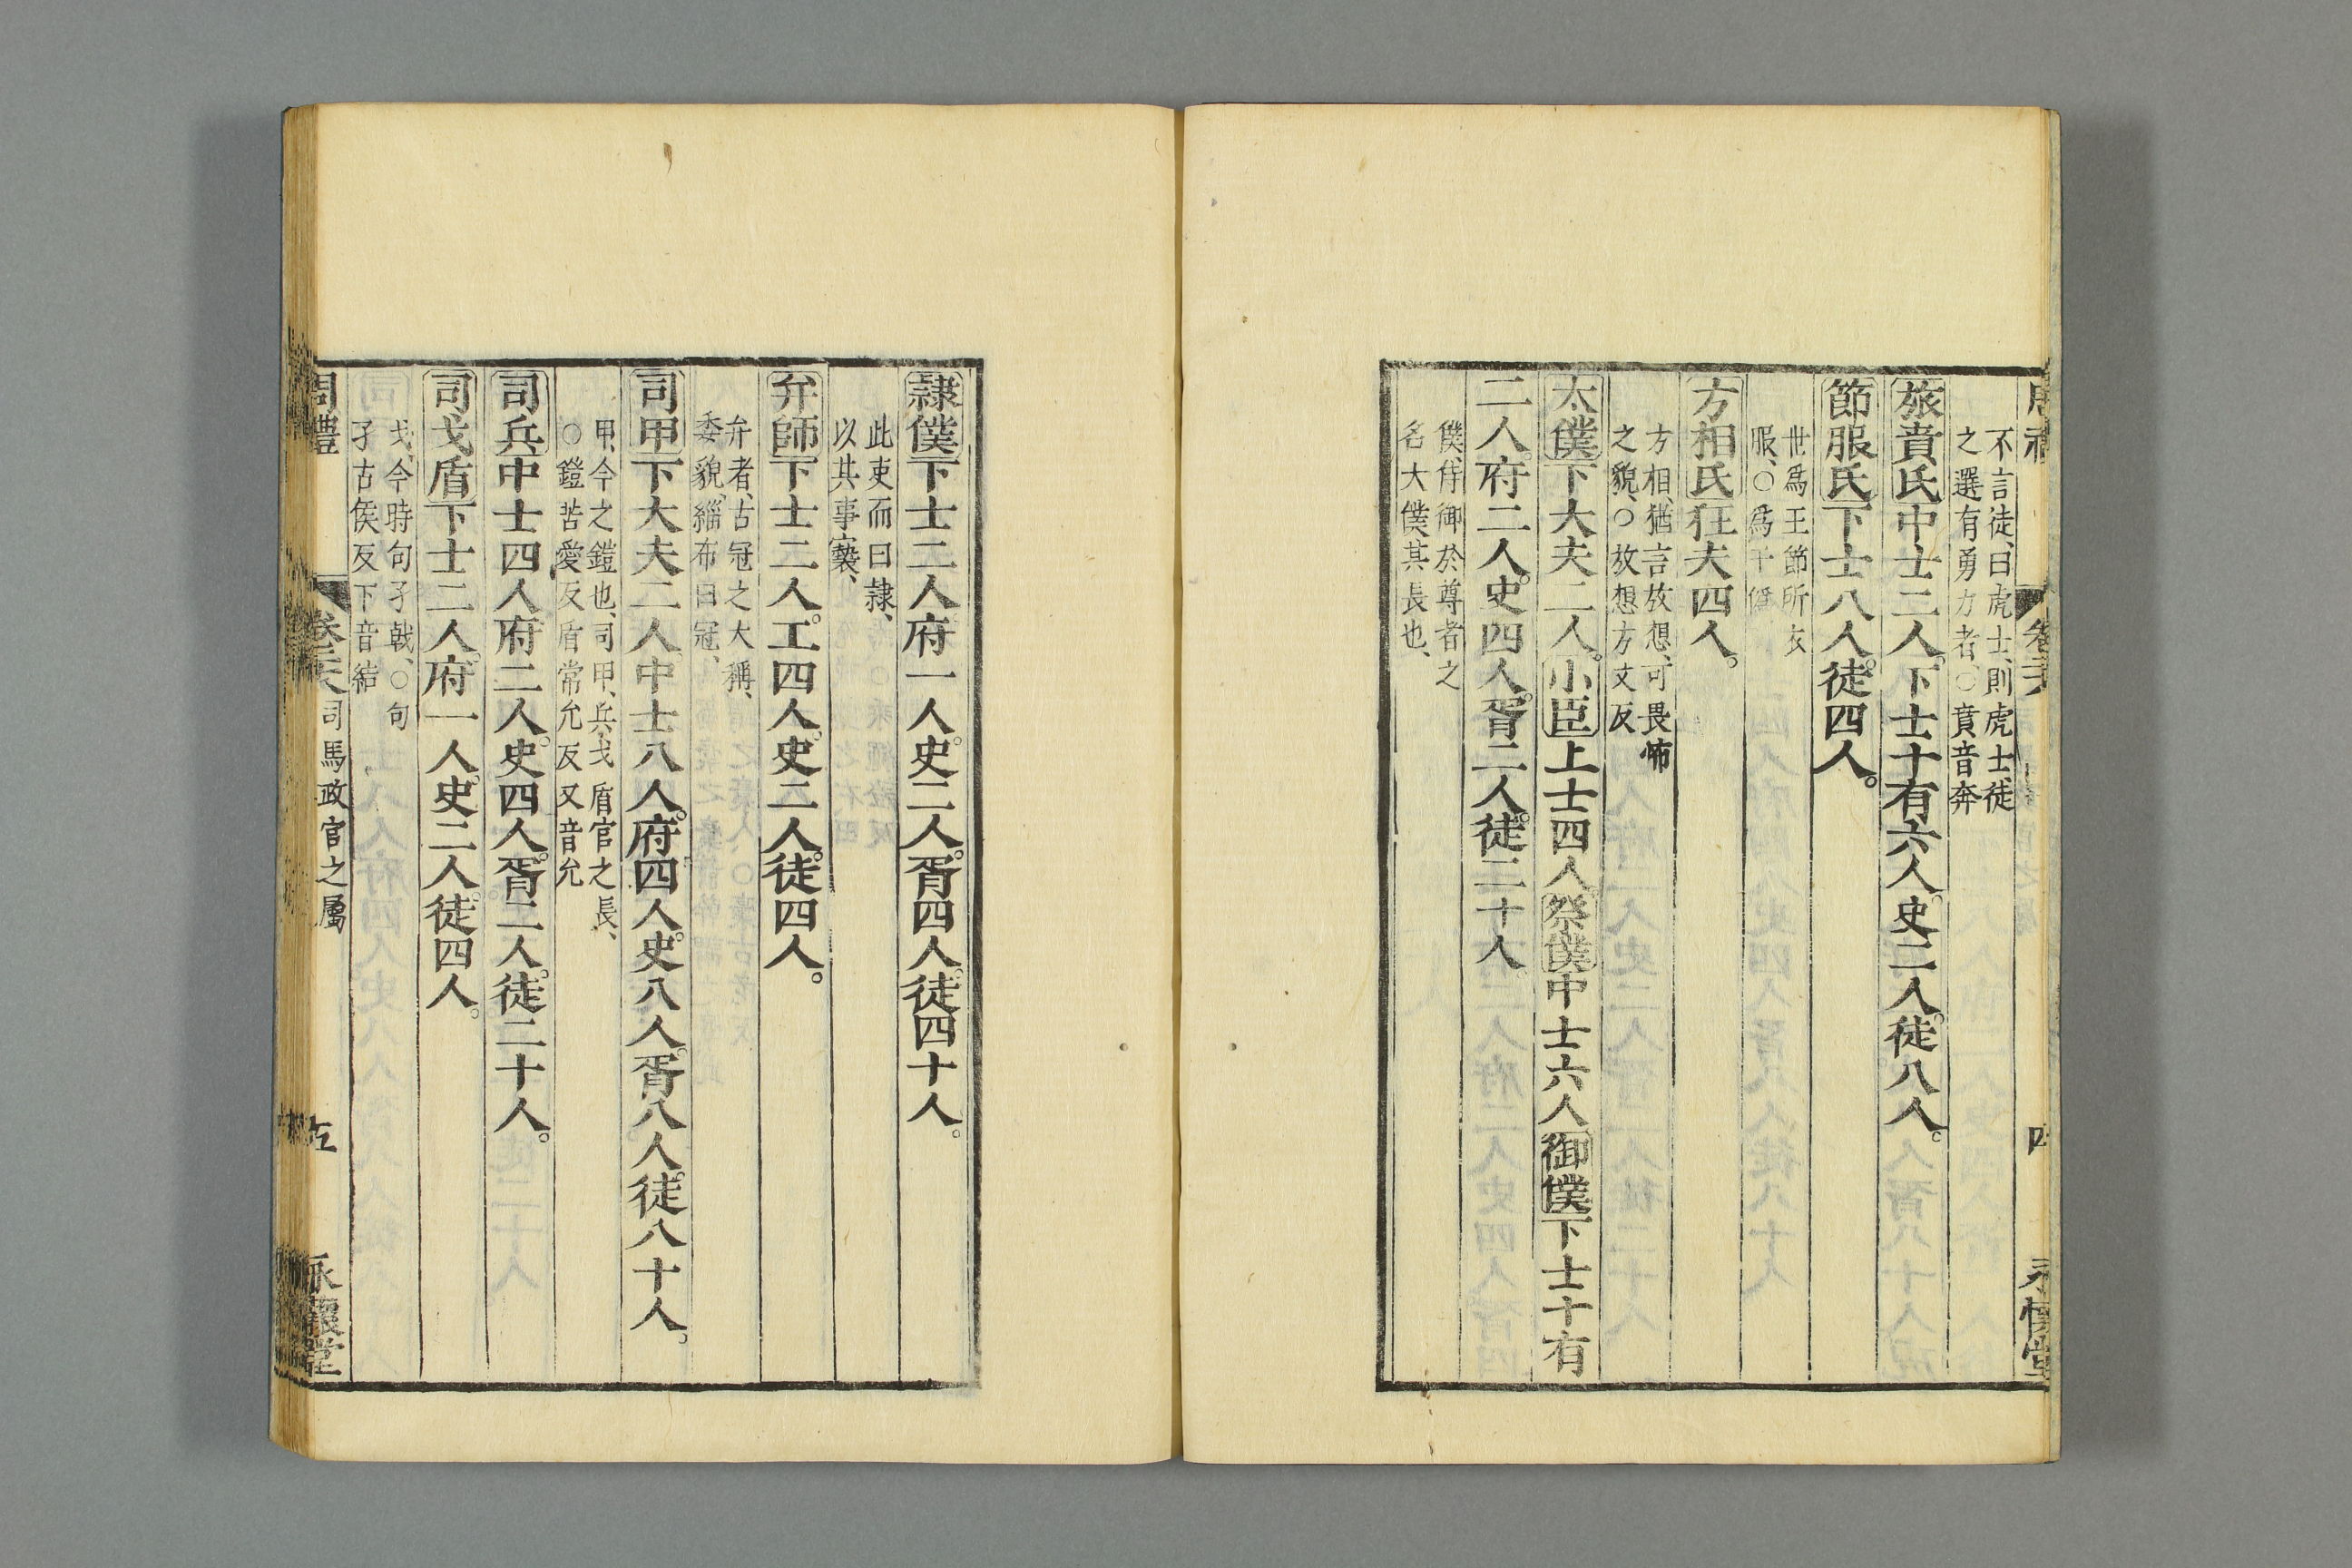 不言徒、曰虎士、則虎士徒
之選有勇力者、○賁音奔
旅賁氏中士二人。下士十有六人。史二人。徒八人。
節服氏下士八人。徒四人。
世爲王節所衣
服、○爲于僞
方相氏狂夫四人。
方相、猶言放想、可畏怖
之貌、○放想方丈反
太僕下大夫二人。小臣上士四人。祭僕中士六人。御僕下士十有
二人。府二人。史四人。胥二人。徒二十人。
僕、侍御於尊者之
名大僕其長也、
隸僕下士二人。府一人。史二人。胥四人。徒四十人。
此吏而曰隸、
以其事褻、
弁師下士二人。工四人。史二人。徒四人。
弁者、古冠之大稱、
委貌、緇布曰冠、
司甲下大夫二人。中士八人。府四人。史八人。胥八人。徒八十人。
甲、今之鎧也、司甲、兵戈盾官之長、
○鎧苦愛反盾常允反又音允
司兵中士四人。府二人。史四人。胥二人。徒二十人。
司戈盾下士二人。府一人。史二人。徒四人。
戈、今時句孑戟、○句
孑古侯反下音結
周禮 卷二十八 司馬政官之屬 五 永懷堂